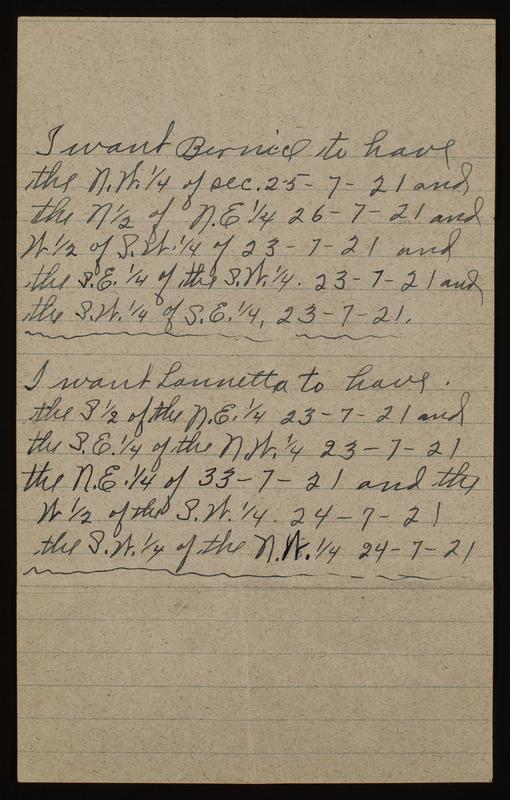 I want Bernice to have
the N.W. 1/4 of sec. 25-7-21 and
the N 1/2 of N.E. 1/4 26-7-21 and
W. 1/2 of S.W. 1/4 of 23-7-21 and
the S.E. 1/4 of the S.W. 1/4. 23-7-21 and
the S.W. 1/4 of S.E. 1/4, 23-7-21.
I want Lannetta to have.
the S 1/2 of the N.E. 1/4 23-7-21 and
the S.E. 1/4 of the N.W. 1/4 23-7-21
the N.E. 1/4 of 33-7-21 and the
W. 1/2 of the S.W. 1/4. 24-7-21
the S.W. 1/4 of the N.W. 1/4 24-7-21